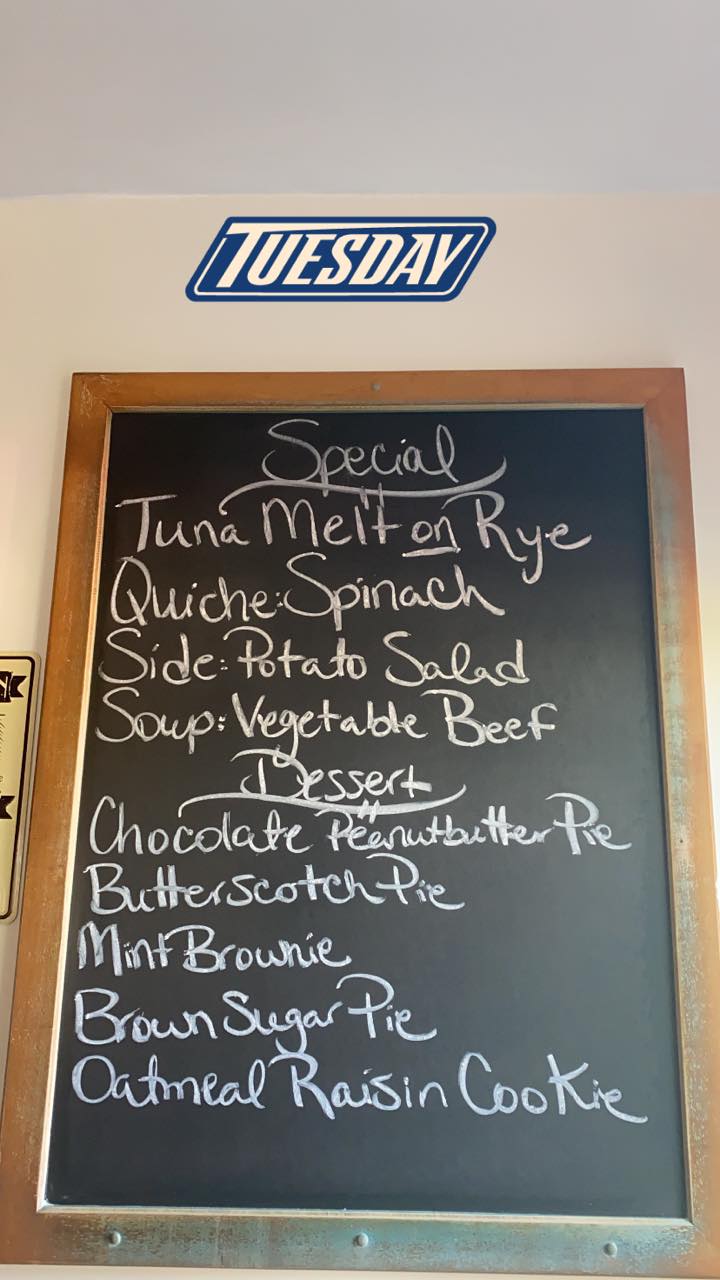 TUESDAY
Special
Tuna Melt on Rye
Quiche: Spinach
Side: Potato Salad
Soup: Vegetable Beef
Dessert
Chocolate Peanutbutter Pie
Butterscotch Pie
Mint Brownie
Brown Sugar Pie
Oatmeal Raisin Cookie